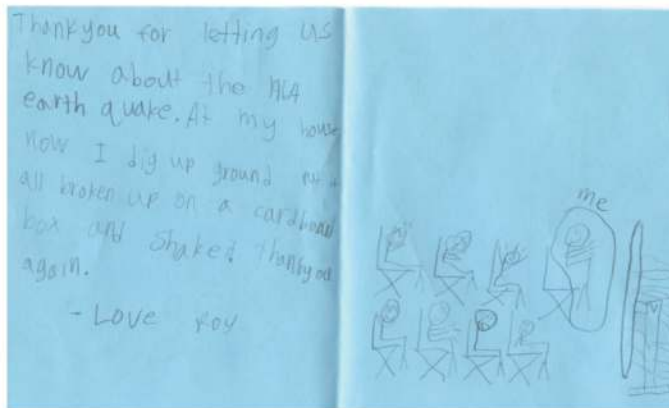 Thankyou for letting us
know about the
earth quake. At my house
now I dig up ground
all broken up on a cardboard
box and shaked thankyou
again.
- Love Roy
me